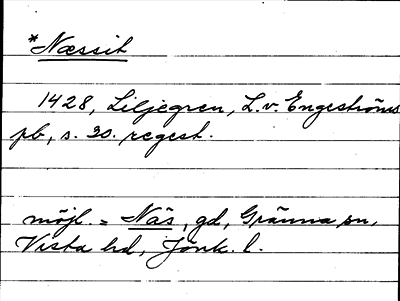 *Næssit
1428, Liljegren, L. v. Engeströms
pb, s. 30. regest.
möjl. = Näs, gd, Gränna sn,
Vista hd, Jönk. l.